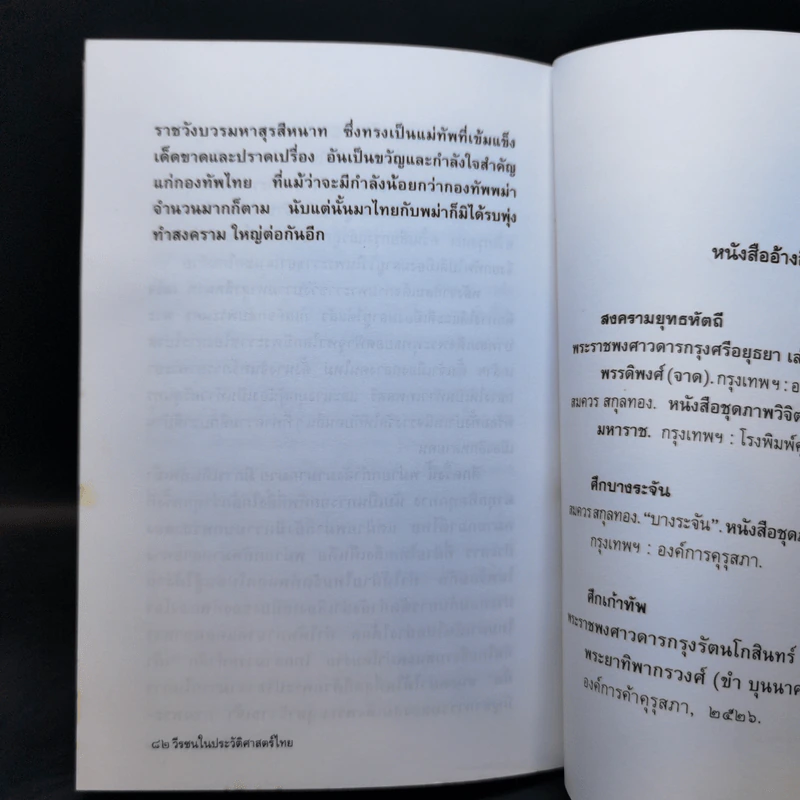 ราชวังบวรมหาสุรสีหนาท ซึ่งทรงเป็นแม่ทัพที่เข้มแข็ง
เด็ดขาดและปราดเปรื่อง อันเป็นขวัญและกำลังใจสำคัญ
แก่กองทัพไทย ที่แม้ว่าจะมีกำลังน้อยกว่ากองทัพพม่า
จำนวนมากก็ตาม นับแต่นั้นมาไทยกับพม่าก็มิได้รบพุ่ง
ทำสงคราม ใหญ่ต่อกันอีก
๘๒ วีรชนในประวัติศาสตร์ไทย
หนังสืออ้างอิ
สงครามยุทธหัตถี
พระราชพงศาวดารกรุงศรีอยุธยา เล่
พรรดิพงศ์ (จาด). กรุงเทพฯ : อ
สมควร สกุลทอง. หนังสือชุดภาพวิจิต
มหาราช. กรุงเทพฯ : โรงพิมพ์คุ
ศึกบางระจัน
สมควร สกุลทอง. “บางระจัน”. หนังสือชุดภ
กรุงเทพฯ : องค์การคุรุสภา.
ศึกเก้าทัพ
พระราชพงศาวดารกรุงรัตนโกสินทร์
พระยาทิพากรวงศ์ (ขำ บุนนาค
องค์การค้าคุรุสภา, ๒๕๒๖.